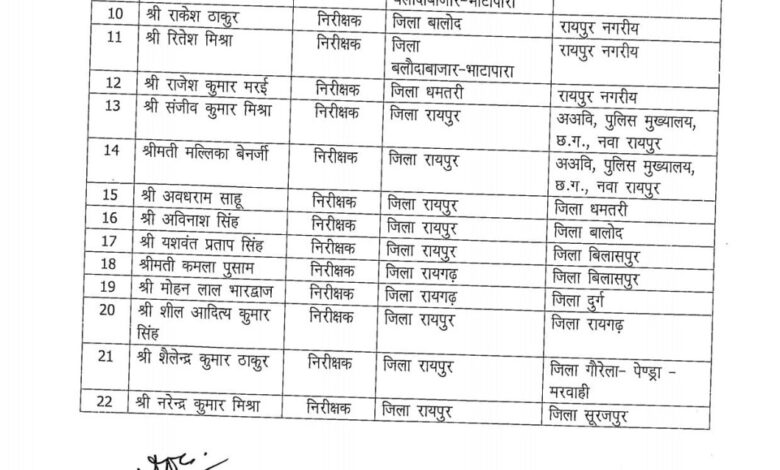 बलौदाबाजार-भाटापारा
10 श्री राकेश ठाकुर निरीक्षक जिला बालोद रायपुर नगरीय
11 श्री रितेश मिश्रा निरीक्षक जिला रायपुर नगरीय
बलौदाबाजार-भाटापारा
12 श्री राजेश कुमार मरई निरीक्षक जिला धमतरी रायपुर नगरीय
13 श्री संजीव कुमार मिश्रा निरीक्षक जिला रायपुर अअवि, पुलिस मुख्यालय,
छ.ग., नवा रायपुर
14 श्रीमती मल्लिका बेनर्जी निरीक्षक जिला रायपुर अअवि, पुलिस मुख्यालय,
छ.ग., नवा रायपुर
15 श्री अवधराम साहू निरीक्षक जिला रायपुर जिला धमतरी
16 श्री अविनाश सिंह निरीक्षक जिला रायपुर जिला बालोद
17 श्री यशवंत प्रताप सिंह निरीक्षक जिला रायपुर जिला बिलासपुर
18 श्रीमती कमला पुसाम निरीक्षक जिला रायगढ़ जिला बिलासपुर
19 श्री मोहन लाल भारद्वाज निरीक्षक जिला रायगढ़ जिला दुर्ग
20 श्री शील आदित्य कुमार निरीक्षक जिला रायपुर जिला रायगढ़
सिंह
21 श्री शैलेन्द्र कुमार ठाकुर निरीक्षक जिला रायपुर जिला गौरेला- पेण्ड्रा -
मरवाही
22 श्री नरेन्द्र कुमार मिश्रा निरीक्षक जिला रायपुर जिला सूरजपुर